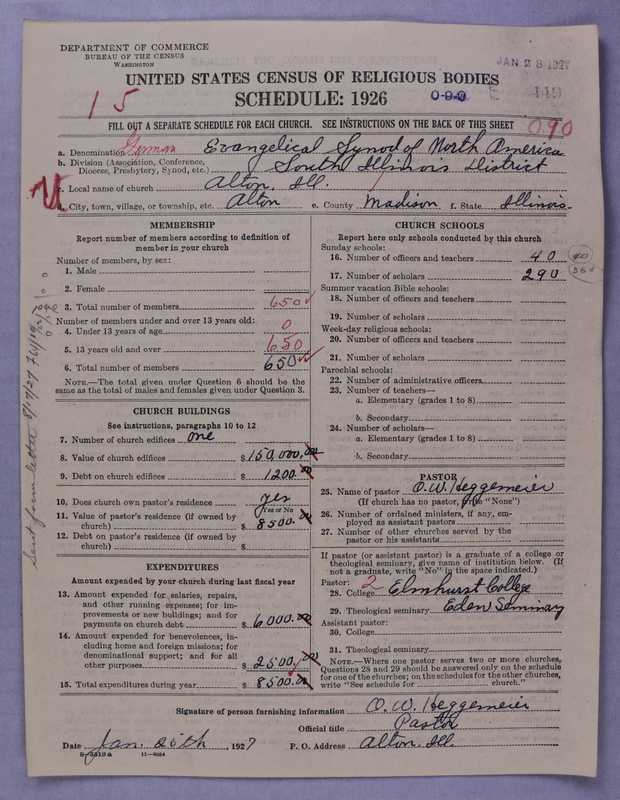 DEPARTMENT OF COMMERCE
BUREAU OF THE CENSUS
WASHINGTON
JAN 28 1927
UNITED STATES CENSUS OF RELIGIOUS BODIES
SCHEDULE: 1926
15
FILL OUT A SEPARATE SCHEDULE FOR EACH CHURCH. SEE INSTRUCTIONS ON THE BACK OF THIS SHEET
090
a. Denomination German Evangelical Synod of North America
b. Division (Association, Conference, Diocese, Presbytery, Synod, etc.) South Illinois District
c. Local name of church Alton, Ill.
d. City, town, village, or township, etc. Alton e. County Madison f. State Illinois
MEMBERSHIP
Report number of members according to definition of
member in your church
Number of members, by sex:
1. Male
2. Female
3. Total number of members 650
Number of members under and over 13 years old:
4. Under 13 years of age 0
5. 13 years old and over 650
6. Total number of members 650
NOTE.—The total given under Question 6 should be the
same as the total of males and females given under Question 3.
CHURCH BUILDINGS
See instructions, paragraphs 10 to 12
7. Number of church edifices one
8. Value of church edifices $150,000.00
9. Debt on church edifices $1200.00
10. Does church own pastor's residence yes
Yes or No
11. Value of pastor's residence (if owned by
church) $8500.00
12. Debt on pastor's residence (if owned by
church) $
EXPENDITURES
Amount expended by your church during last fiscal year
13. Amount expended for salaries, repairs,
and other running expenses; for im-
provements or new buildings; and for
payments on church debt $6000.00
14. Amount expended for benevolences, in-
cluding home and foreign missions; for
denominational support; and for all
other purposes $2500.00
15. Total expenditures during year $8500.00
CHURCH SCHOOLS
Report here only schools conducted by this church
Sunday schools:
16. Number of officers and teachers 40
17. Number of scholars 290
Summer vacation Bible schools:
18. Number of officers and teachers
19. Number of scholars
Week-day religious schools:
20. Number of officers and teachers
21. Number of scholars
Parochial schools:
22. Number of administrative officers
23. Number of teachers—
a. Elementary (grades 1 to 8)
b. Secondary
24. Number of scholars—
a. Elementary (grades 1 to 8)
b. Secondary
PASTOR
25. Name of pastor O. W. Heggemeier
(If church has no pastor, write "None")
26. Number of ordained ministers, if any, em-
ployed as assistant pastors
27. Number of other churches served by the
pastor or his assistants
If pastor (or assistant pastor) is a graduate of a college or
theological seminary, give name of institution below. (If
not a graduate, write "No" in the space indicated.)
Pastor: 2
28. College Elmhurst College
29. Theological seminary Eden Seminary
Assistant pastor:
30. College
31. Theological seminary
NOTE.—Where one pastor serves two or more churches,
Questions 28 and 29 should be answered only on the schedule
for one of the churches; on the schedules for the other churches,
write "See schedule for church."
Signature of person furnishing information O. W. Heggemeier
Official title Pastor
Date Jan. 25th, 1927 P. O. Address Alton, Ill.
11—9054